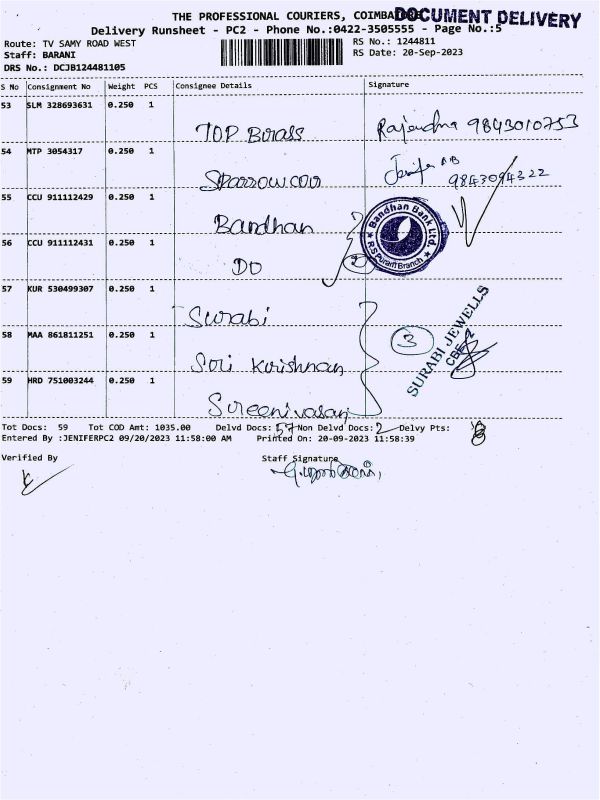 THE PROFESSIONAL COURIERS, COIMBATORE
DOCUMENT DELIVERY
Delivery Runsheet - PC2 - Phone No.:0422-3505555 - Page No.:5
Route: TV SAMY ROAD WEST RS No.: 1244811
Staff: BARANI RS Date: 20-Sep-2023
DRS No.: DCJB124481105
S No Consignment No Weight PCS Consignee Details Signature
53 SLM 328693631 0.250 1
TOP Brass Rajendra 9843010753
54 MTP 3054317 0.250 1
Sparrowcon Jenifer 9843094322
55 CCU 911112429 0.250 1
Bandhan
Bandhan Bank Ltd.
R.S Puram Branch
56 CCU 911112431 0.250 1
DO 2
57 KUR 530499307 0.250 1
Surabi
SURABI JEWELLS
CBE-2
58 MAA 861811251 0.250 1
3
Sri Krishnan
59 HRD 751003244 0.250 1
Sreenivasan
Tot Docs: 59 Tot COD Amt: 1035.00 Delvd Docs: 57 Non Delvd Docs: 2 Delvy Pts:
Entered By :JENIFERPC2 09/20/2023 11:58:00 AM Printed On: 20-09-2023 11:58:39
Verified By Staff Signature